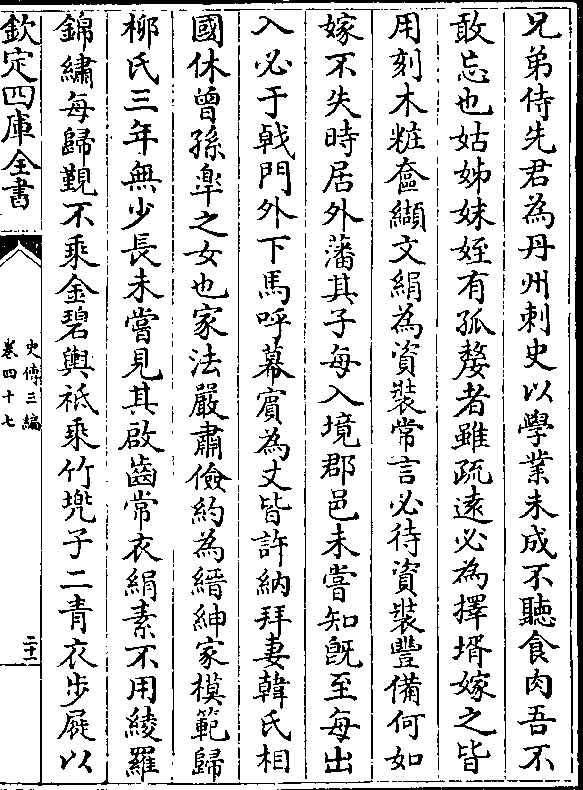 兄弟侍先君為丹州刺史以學業未成不聽食肉吾不
敢忘也姑姊妹姪有孤嫠者雖疏逺必為擇壻嫁之皆
用刻木粧奩纈文絹為資裝常言必待資裝豐備何如
嫁不失時居外藩其子每入境郡邑未嘗知既至每出
入必于戟門外下馬呼幕賔為丈皆許納拜妻韓氏相
國休曾孫臯之女也家法嚴肅儉約為縉紳家模範歸
栁氏三年無少長未嘗見其啟齒常衣絹素不用綾羅
錦繡每歸覲不乘金碧輿祗乘竹兠子二青衣步屣以
欽定四庫全書
史傳三編
卷四十七
二十二